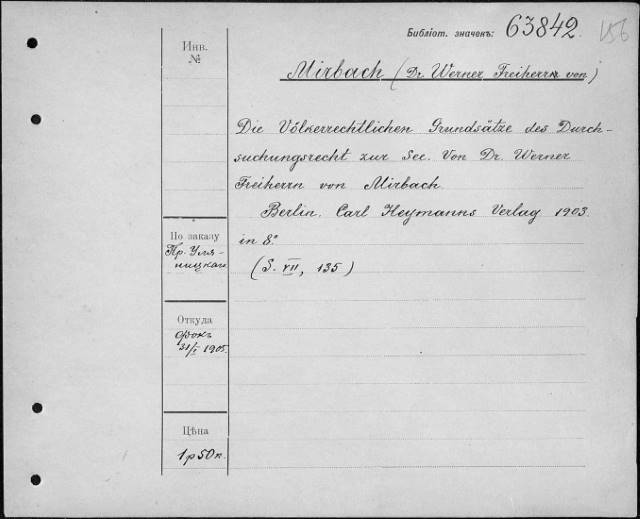 Библіот. значекъ: 63842. 156
Инв.
№
Mirbach (Dr. Werner Freiherrn von)
Die Völkerrechtlichen Grundsätze des Durch-
suchungsrecht zur See. Von Dr. Werner
Freiherrn von Mirbach.
Berlin. Carl Heymanns Verlag 1903.
in 8.°
(S. VII, 135)
По заказу
Пр. Уля-
ницкаго
Откуда
Фокъ
31/I 1905.
Цѣна
1 р 50 к.